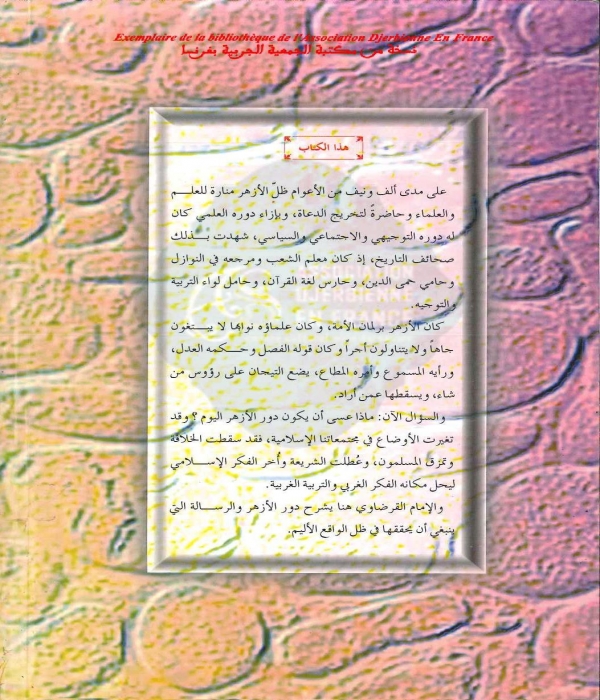 Exemplaire de la bibliothèque de l'Association Djerbienne En France
نسخة من مكتبة الجمعية الجربية بفرنسا
هذا الكتاب
على مدى ألف ونيف من الأعوام ظلّ الأزهر منارة للعلم
والعلماء وحاضرةً لتخريج الدعاة، وبإزاء دوره العلمي كان
له دوره التوجيهي والاجتماعي والسياسي، شهدت بذلك
صحائف التاريخ، إذ كان معلم الشعب ومرجعه في النوازل
وحامي حمى الدين، وحارس لغة القرآن، وحامل لواء التربية
والتوجيه.
كان الأزهر برلمان الأمة، وكان علماؤه نوابها لا يبتغون
جاهاً ولا يتناولون أجراً وكان قوله الفصل وحكمه العدل،
ورأيه المسموع وأمره المطاع، يضع التيجان على رؤوس من
شاء، ويسقطها عمن أراد.
والسؤال الآن: ماذا عسى أن يكون دور الأزهر اليوم؟ وقد
تغيرت الأوضاع في مجتمعاتنا الإسلامية، فقد سقطت الخلافة
وتمزق المسلمون، وعُطلت الشريعة وأُخر الفكر الإسلامي
ليحل مكانه الفكر الغربي والتربية الغربية.
والإمام القرضاوي هنا يشرح دور الأزهر والرسالة التي
ينبغي أن يحققها في ظل الواقع الأليم.
ASSOCIATION
DJERBIENNE
EN FRANCE